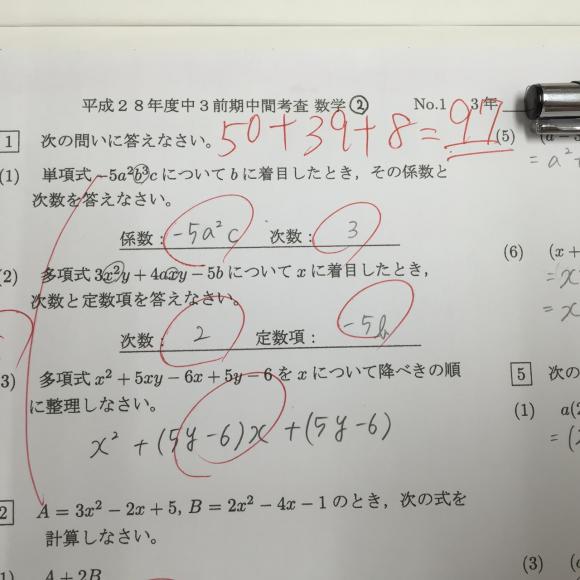 平成28年度中3前期中間考査 数学② No.1 3年
50+39+8=97
1 次の問いに答えなさい。
(1) 単項式 −5a²b³c について b に着目したとき，その係数と
次数を答えなさい。
係数： −5a²c 次数： 3
(2) 多項式 3x²y + 4axy − 5b について x に着目したとき，
次数と定数項を答えなさい。
次数： 2 定数項： −5b
3) 多項式 x² + 5xy − 6x + 5y − 6 を x について降べきの順
に整理しなさい。
x² + (5y−6)x + (5y−6)
2 A = 3x² − 2x + 5, B = 2x² − 4x − 1 のとき，次の式を
計算しなさい。
1) A + 2B
(5)
= a²+
(6) (x +
= x
= x
5 次の
(1) a(2
= (2
(3)